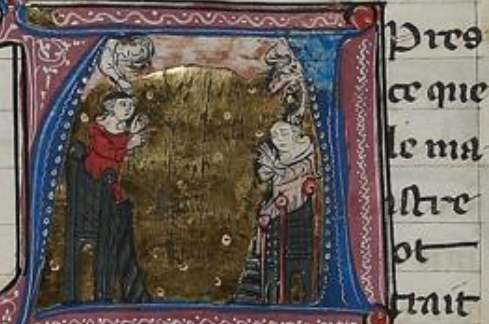 Pres
ce que
le ma
istre
ot
trait